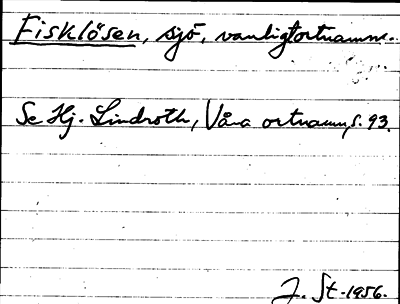 Fisklösen, sjö, vanligt ortnamn.
Se Hj. Lindroth, Våra ortnamn, s. 93.
J. St. 1956.